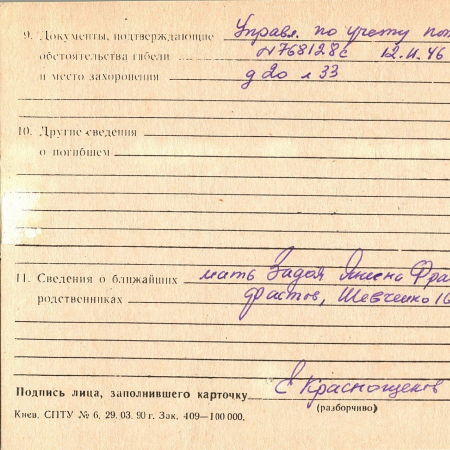 9. Документы, подтверждающие Управл. по учету пот
обстоятельства гибели N768128с 12.II.46
и место захоронения д 20 л 33
10. Другие сведения
о погибшем
11. Сведения о ближайших мать Задоя Фра
родственниках Фастов, Шевченко 16
Подпись лица, заполнившего карточку Е Краснощеков
(разборчиво)
Киев. СПТУ № 6. 29. 03. 90 г. Зак. 409—100 000.